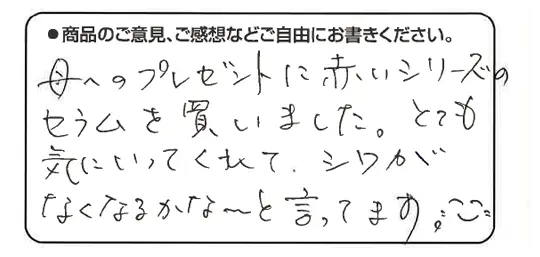 ●商品のご意見、ご感想などご自由にお書きください。
母へのプレゼントに赤いシリーズの
セラムを買いました。とても
気にいってくれて、シワが
なくなるかな〜と言ってます。